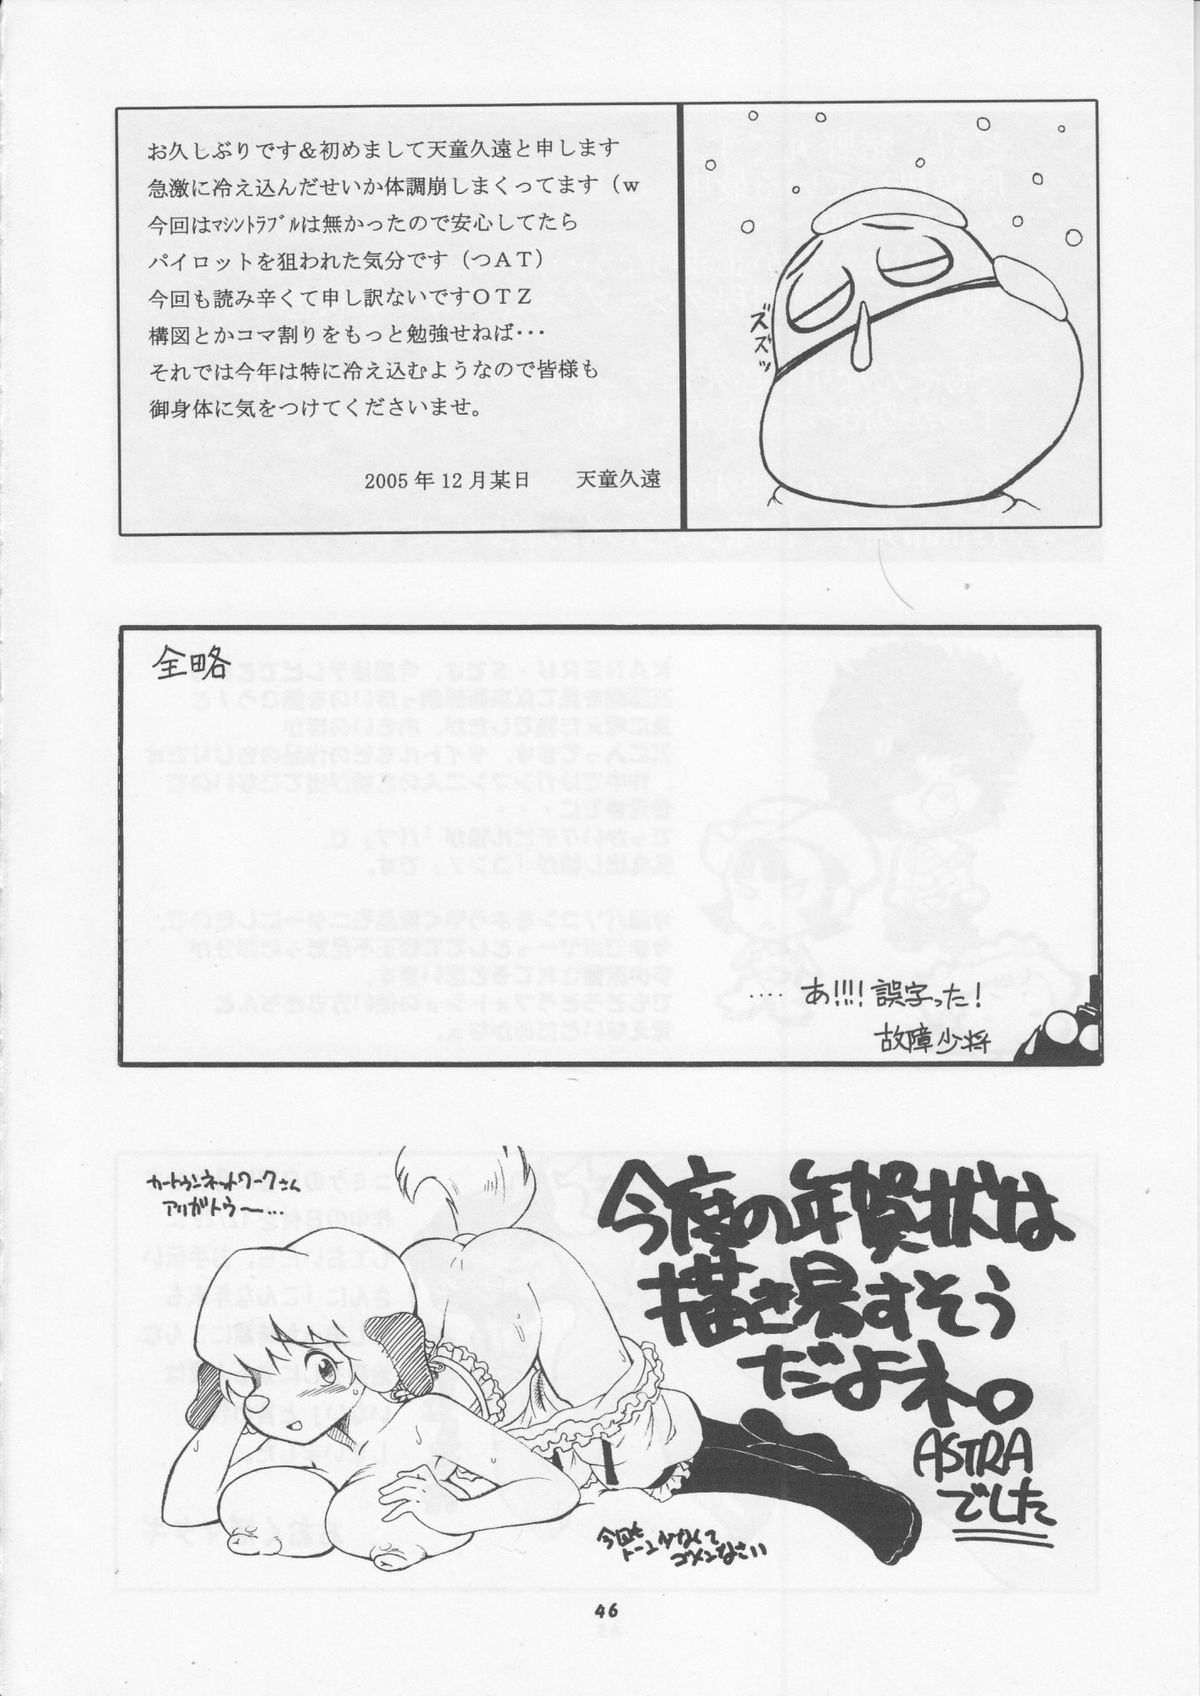 お久しぶりです＆初めまして天童久遠と申します
急激に冷え込んだせいか体調崩しまくってます（ｗ
今回はﾏｼﾝﾄﾗﾌﾞﾙは無かったので安心してたら
パイロットを狙われた気分です（つＡＴ）
今回も読み辛くて申し訳ないですＯＴＺ
構図とかコマ割りをもっと勉強せねば･･･
それでは今年は特に冷え込むようなので皆様も
御身体に気をつけてくださいませ。
2005年12月某日　天童久遠
ズズッ
全略
‥‥ あ!!!! 誤字った!
故障少将
カートゥンネットワークさん
アリガトウ〜…
今度の年賀状は
描き易すそう
だよネ。
ASTRA
でした
今回も
トーンかなくて
ゴメンなさい
46